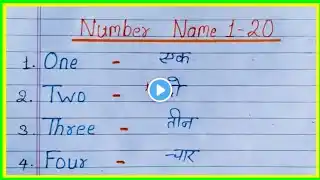 Number Name 1-20
1. One - एक
2. Two -
3. Three - तीन
4. Four - चार